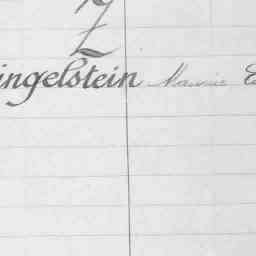 Z
ingelstein Maurice E